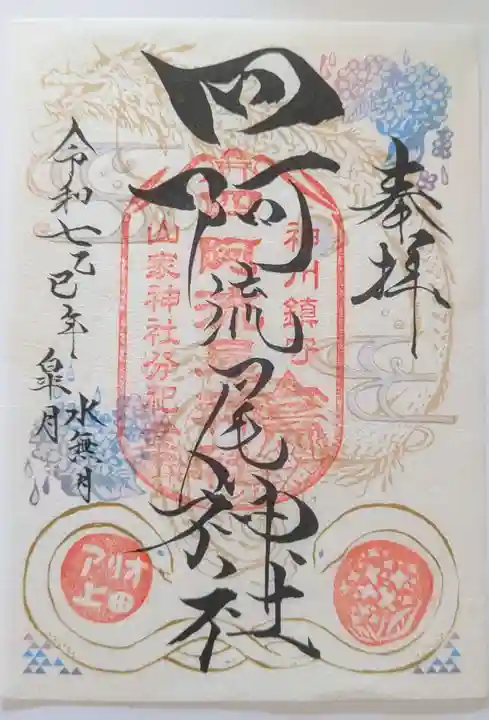 奉拝
四阿流尾神社
令和七乙巳年
皐月
水無月
神川鎮守
山家神社分祀
アリオ
上田